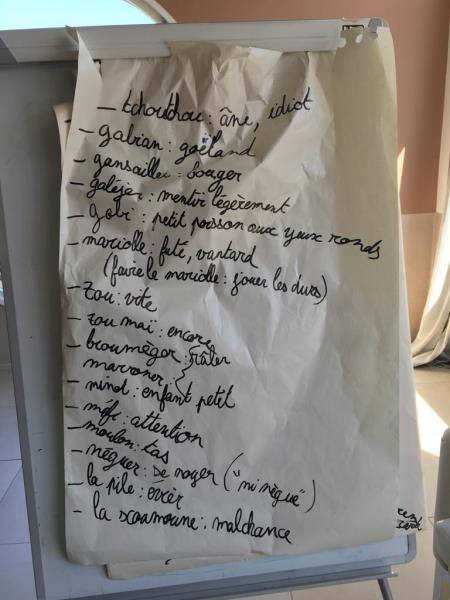 - tchoutchou : âne, idiot
- gabian : goëland
- gansailler : bouger
- galéjer : mentir légèrement
- gobi : petit poisson aux yeux ronds
- mariolle : futé, vantard
(faire le mariolle : jouer les durs)
- zou : vite
- zou maï : encore
- broumèger : râler
marroner
- minot : enfant petit
- méfi : attention
- moulon : tas
- nèguer : se noyer ("mi nègue")
- la pile : évier
- la scoumoune : malchance